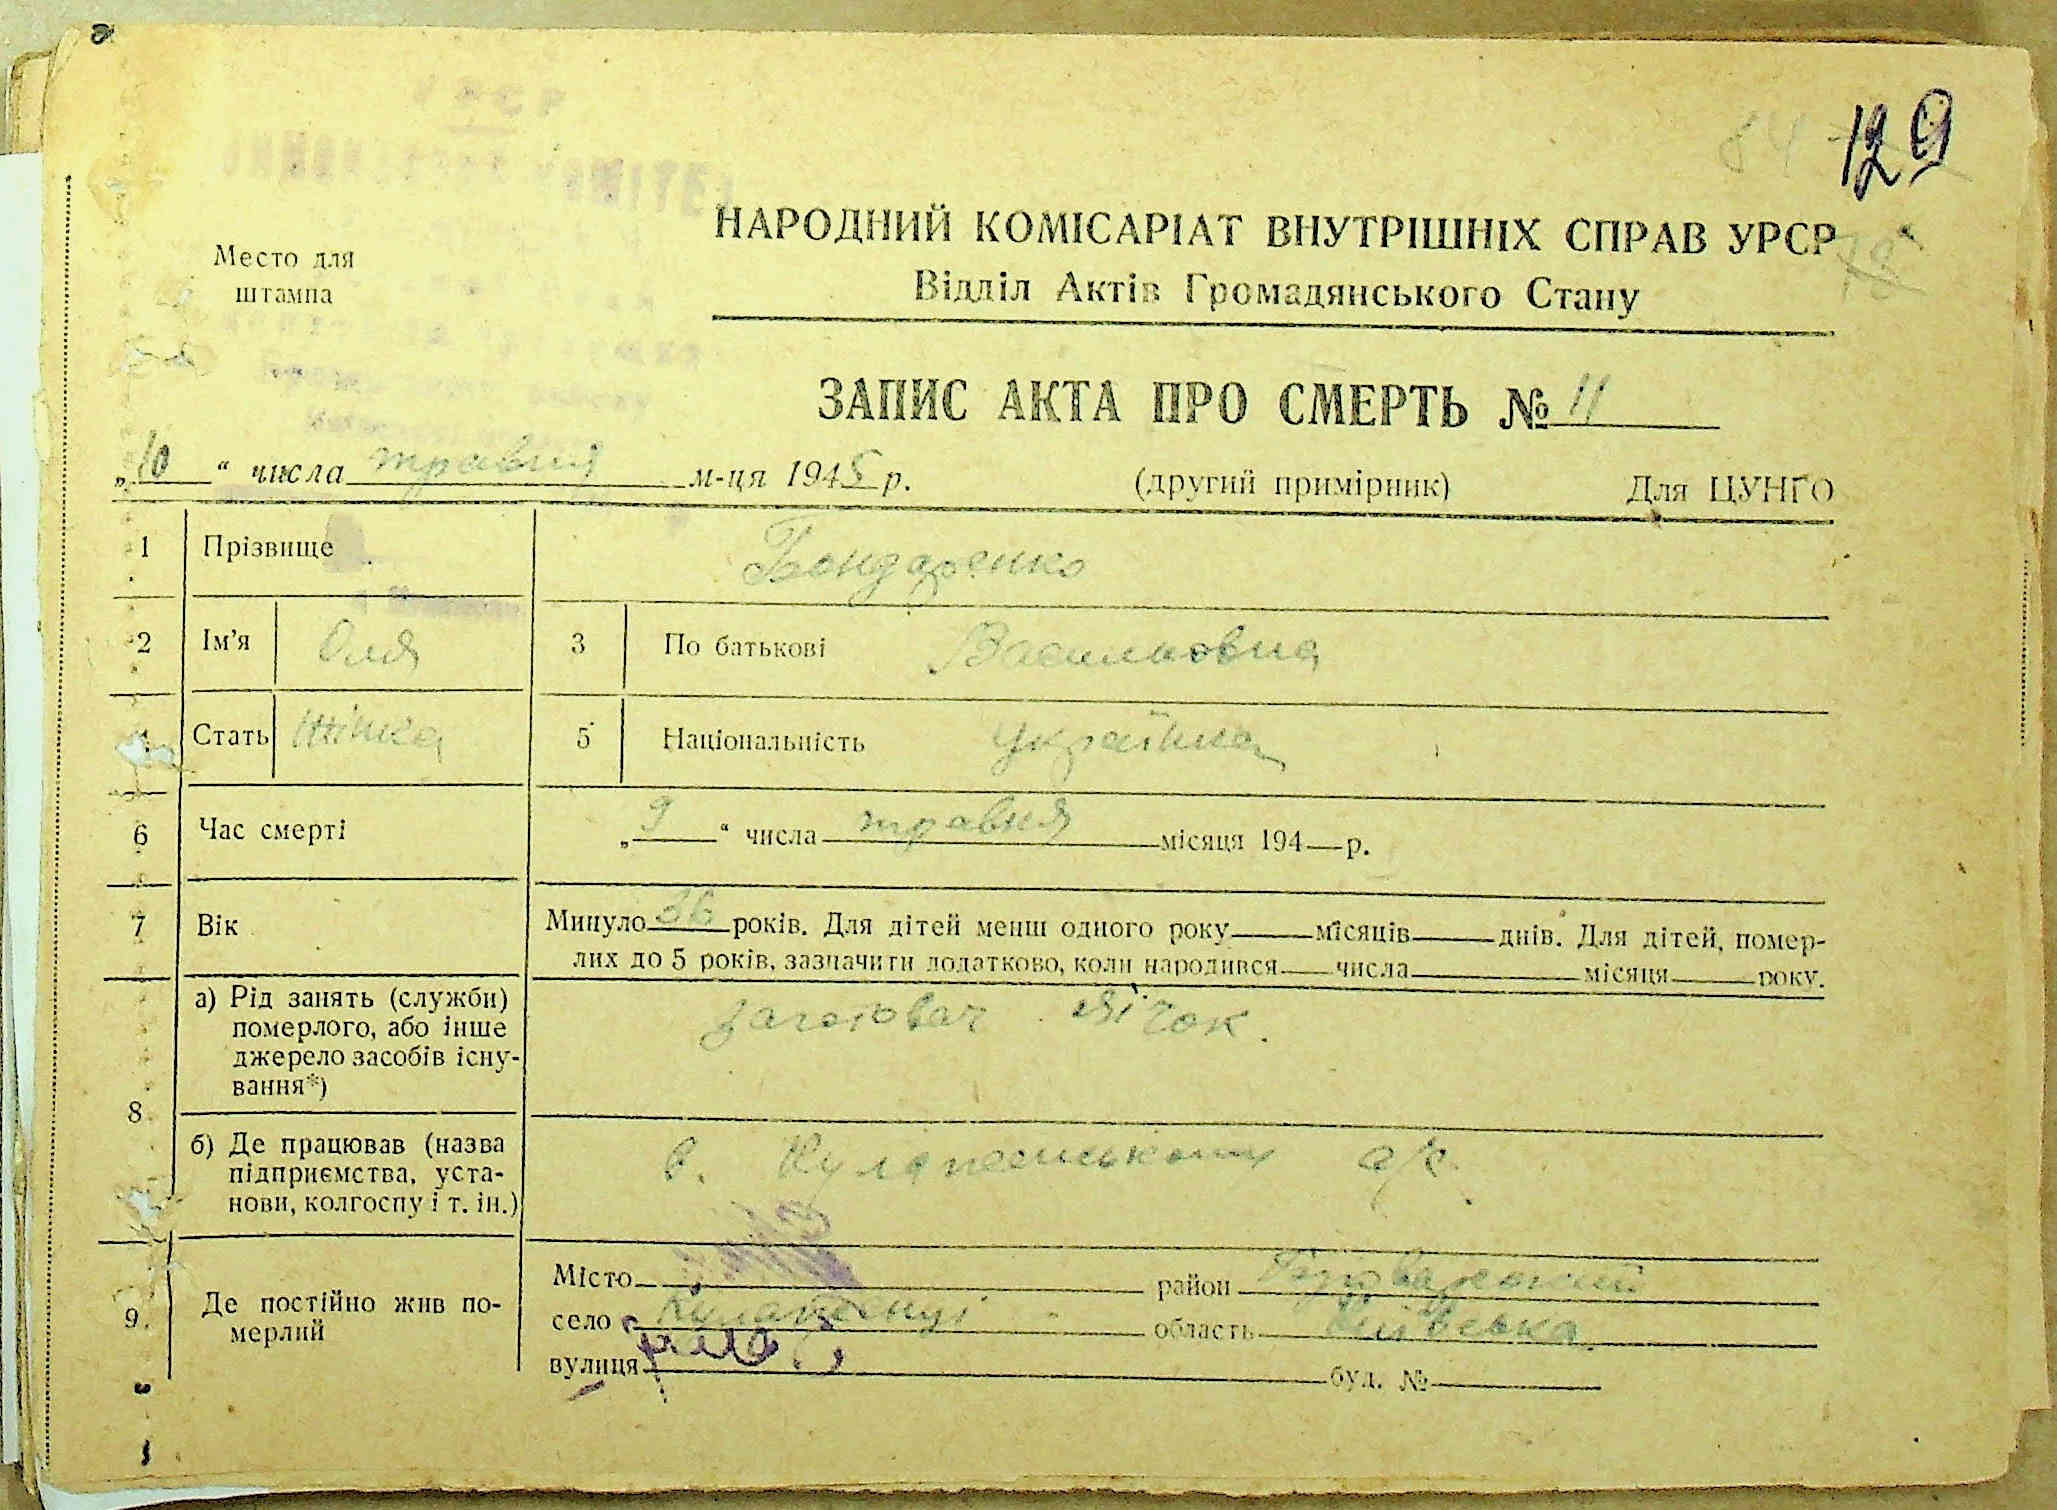 УРСР
84
129
НАРОДНИЙ КОМІСАРІАТ ВНУТРІШНІХ СПРАВ УРСР
78
Место для
штампа
Відділ Актів Громадянського Стану
ЗАПИС АКТА ПРО СМЕРТЬ № 11
„10“ числа травня м-ця 1945 р. (другий примірник) Для ЦУНГО
1 Прізвище Бондаренко
2 Ім'я Оля 3 По батькові Васильовна
4 Стать Жінка 5 Національність Українка
6 Час смерті „9“ числа травня місяця 194 р.
7 Вік Минуло 36 років. Для дітей менш одного року місяців днів. Для дітей, помер-
лих до 5 років, зазначити додатково, коли народився числа місяця року.
8 а) Рід занять (служби) померлого, або інше джерело засобів існу-вання*) заготовач яічок.
б) Де працював (назва підприємства, уста-нови, колгоспу і т. ін.) в. с/с.
9. Де постійно жив по-мерлий
Місто район Броварський
село область Київська
вулиця буд. №